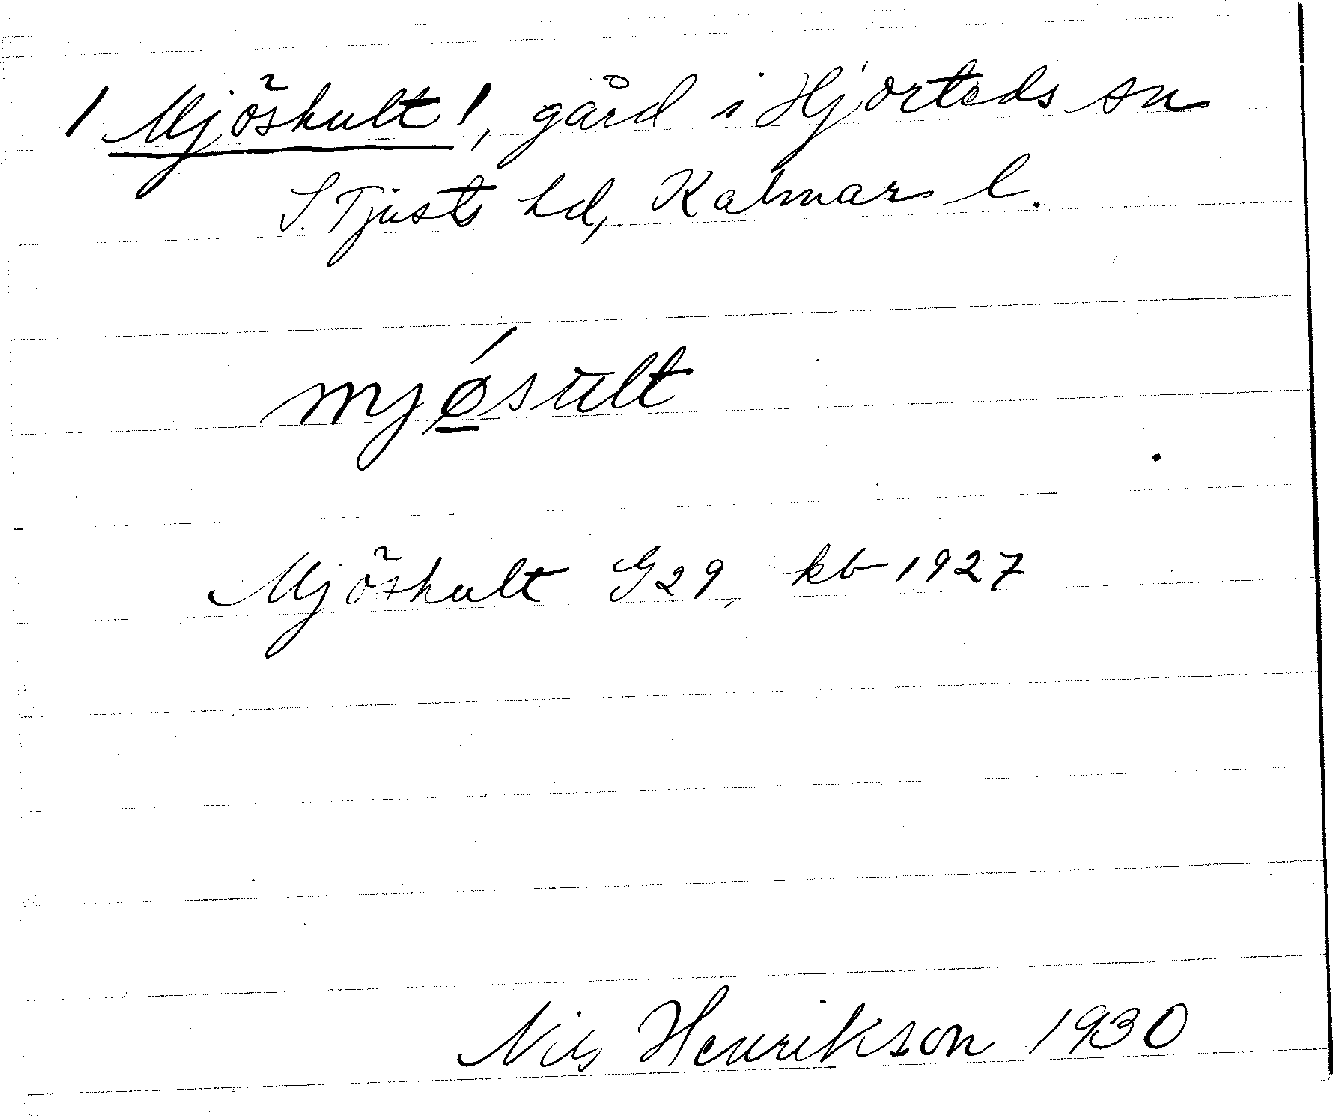 / Mjöshult /, gård i Hjorteds sn
S. Tjusts hd, Kalmar l.
mjǿsult
Mjöshult G29, kb 1927
Nils Henrikson 1930